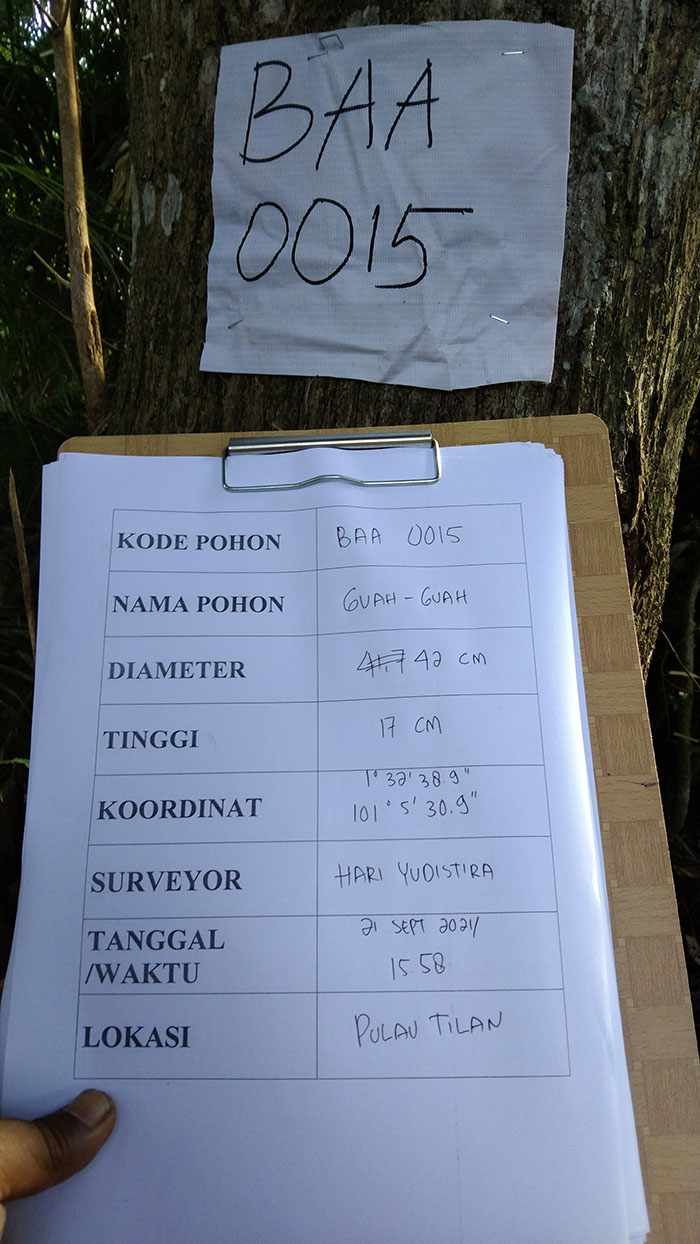 BAA
0015
KODE POHON BAA 0015
NAMA POHON GUAH - GUAH
DIAMETER 41,7 42 CM
TINGGI 17 CM
KOORDINAT 1° 32' 38.9"
101° 5' 30.9"
SURVEYOR HARI YUDISTIRA
TANGGAL 21 SEPT 2021/
/WAKTU 15.58
LOKASI PULAU TILAN